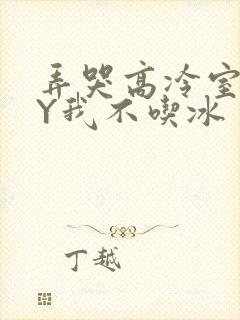 弄哭高冷室
Y我不喫冰
丁越